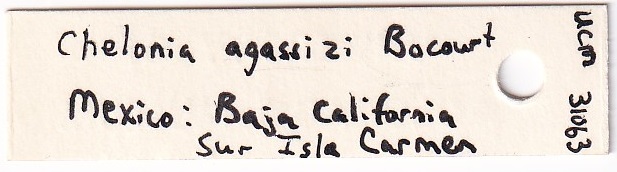 Chelonia agassizi Bocourt
Mexico: Baja California
Sur Isla Carmen
UCM 31063